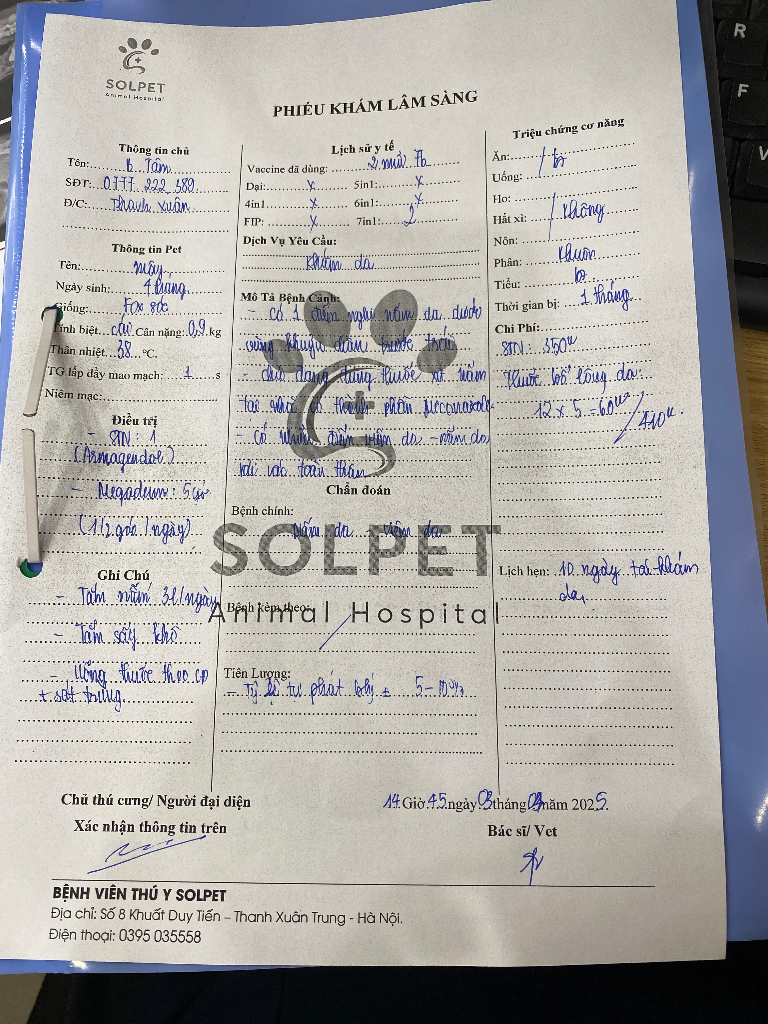 SOLPET
Animal Hospital
PHIẾU KHÁM LÂM SÀNG
Thông tin chủ
Tên: K Tâm
SĐT: 0777 222 389
Đ/C: Thanh Xuân
Thông tin Pet
Tên: mây
Ngày sinh: 4 tháng
Giống: Fox sóc
Tính biệt: cái Cân nặng: 0,9 kg
Thân nhiệt: 38 °C.
TG lấp đầy mao mạch: 1 s
Niêm mạc:
Điều trị
- STN: 1
- Megaderm: 5 gói
(1/2 gói / ngày)
Ghi Chú
- Tắm nấm 3l/ngày
- Tắm sấy khô
- Uống thuốc theo CD
+ sát trùng
Lịch sử y tế
Vaccine đã dùng: 2 mũi 7b
Dại: x 5in1: x
4in1 x 6in1: x
FIP: x 7in1: 2
Dịch Vụ Yêu Cầu:
Khám da
Mô Tả Bệnh Cảnh:
- Có 1 điểm nghi nấm da dưới
vùng khuỷu chân trước trái
- chủ đang dùng thuốc xịt nấm
tại nhà có thành phần Miconazole
- có nhiều điểm viêm da - nấm da
rải rác toàn thân
Chẩn đoán
Bệnh chính:
nấm da viêm da
SOLPET
Animal Hospital
Bệnh kèm theo:
Tiên Lượng:
- Tỷ lệ tự phát bệnh ± 5-10%
Triệu chứng cơ năng
Ăn: bt
Uống:
Ho:
Hắt xì: không
Nôn:
Phân: khuôn
Tiểu: bt
Thời gian bị: 1 tháng
Chi Phí:
STN: 350k
thuốc bổ lông da:
12 x 5 = 60k
410k
Lịch hẹn: 10 ngày tái khám
da
14 Giờ 45 ngày 03 tháng 09 năm 2025.
Chủ thú cưng/ Người đại diện
Xác nhận thông tin trên
Bác sĩ/ Vet
BỆNH VIỆN THÚ Y SOLPET
Địa chỉ: Số 8 Khuất Duy Tiến – Thanh Xuân Trung - Hà Nội.
Điện thoại: 0395 035558
R
F